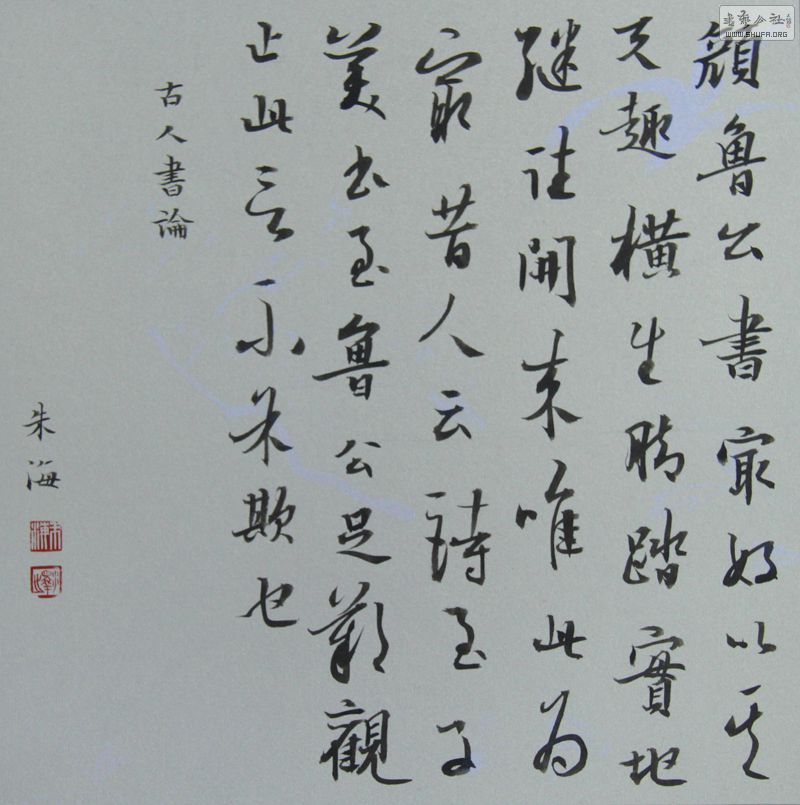 顏魯公書最好以其
天趣橫生腳踏實地
繼往開來唯此為
最昔人云詩至子
美書至魯公足歎觀
止此言不余欺也
古人書論
朱海
書藝公社
WWW.SHUFA.ORG